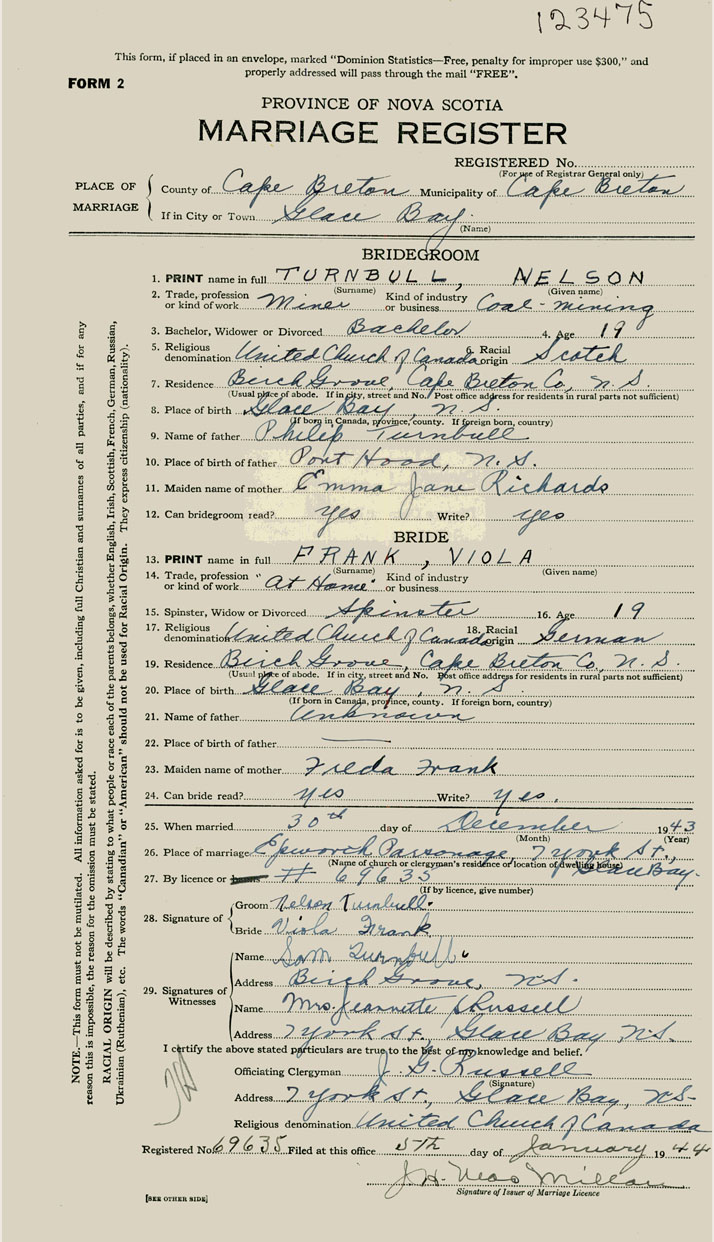 123475
This form, if placed in an envelope, marked "Dominion Statistics—Free, penalty for improper use $300," and
properly addressed will pass through the mail "FREE".
FORM 2
PROVINCE OF NOVA SCOTIA
MARRIAGE REGISTER
REGISTERED No.
(For use of Registrar General only)
PLACE OF MARRIAGE
County of Cape Breton Municipality of Cape Breton
If in City or Town Glace Bay.
(Name)
BRIDEGROOM
1. PRINT name in full TURNBULL, NELSON
(Surname) (Given name)
2. Trade, profession or kind of work Miner Kind of industry or business Coal-mining
3. Bachelor, Widower or Divorced Bachelor 4. Age 19
5. Religious denomination United Church of Canada 6. Racial origin Scotch
7. Residence Birch Grove, Cape Breton Co, N. S.
(Usual place of abode. If in city, street and No. Post office address for residents in rural parts not sufficient)
8. Place of birth Glace Bay, N. S.
(If born in Canada, province, county. If foreign born, country)
9. Name of father Philip Turnbull
10. Place of birth of father Port Hood, N. S.
11. Maiden name of mother Emma Jane Richards
12. Can bridegroom read? yes Write? yes
BRIDE
13. PRINT name in full FRANK, VIOLA
(Surname) (Given name)
14. Trade, profession or kind of work "At Home" Kind of industry or business
15. Spinster, Widow or Divorced Spinster 16. Age 19
17. Religious denomination United Church of Canada 18. Racial origin German
19. Residence Birch Grove, Cape Breton Co, N. S.
(Usual place of abode. If in city, street and No. Post office address for residents in rural parts not sufficient)
20. Place of birth Glace Bay, N. S.
(If born in Canada, province, county. If foreign born, country)
21. Name of father Unknown
22. Place of birth of father
23. Maiden name of mother Freda Frank
24. Can bride read? yes Write? yes.
25. When married 30th day of December 1943
(Month) (Year)
26. Place of marriage Epworth Parsonage, 7 York St.,
(Name of church or clergyman's residence or location of dwelling house)
Glace Bay.
27. By licence or banns # 69635
(If by licence, give number)
28. Signature of
Groom Nelson Turnbull.
Bride Viola Frank
29. Signatures of Witnesses
Name Sam Turnbull
Address Birch Grove, N.S.
Name Mrs. Jeannette Russell
Address 7 York St, Glace Bay N.S.
I certify the above stated particulars are true to the best of my knowledge and belief.
Officiating Clergyman J. G. Russell
(Signature)
Address 7 York St., Glace Bay, N.S.
Religious denomination United Church of Canada
Registered No. 69635 Filed at this office 5th day of January 1944
J. H. MacMillan
Signature of Issuer of Marriage Licence
[SEE OTHER SIDE]
NOTE.—This form must not be mutilated. All information asked for is to be given, including full Christian and surnames of all parties, and if for any
reason this is impossible, the reason for the omission must be stated.
RACIAL ORIGIN will be described by stating to what people or race each of the parents belongs, whether English, Irish, Scottish, French, German, Russian,
Ukrainian (Ruthenian), etc. The words "Canadian" or "American" should not be used for Racial Origin. They express citizenship (nationality).